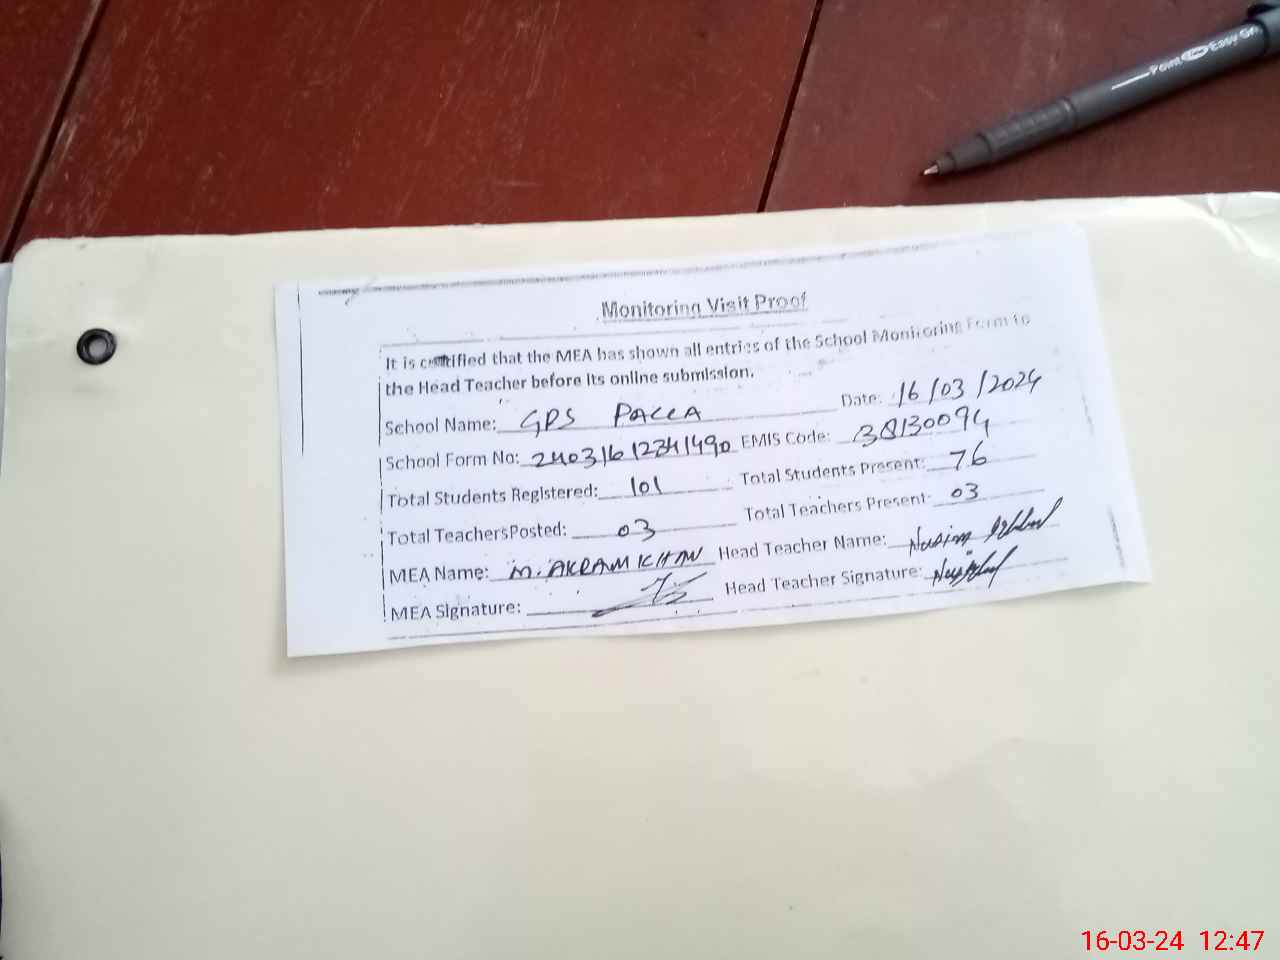 Point Easy Gr
Monitoring Visit Proof
It is certified that the MEA has shown all entries of the School Monitoring Form to
the Head Teacher before its online submission.
School Name: GPS PACCA Date: 16/03/2024
School Form No: 240316 12341490 EMIS Code: 38130094
Total Students Registered: 101 Total Students Present: 76
Total Teachers Posted: 03 Total Teachers Present: 03
MEA Name: M. AKRAM KHAN Head Teacher Name:
MEA Signature: Head Teacher Signature:
16-03-24 12:47